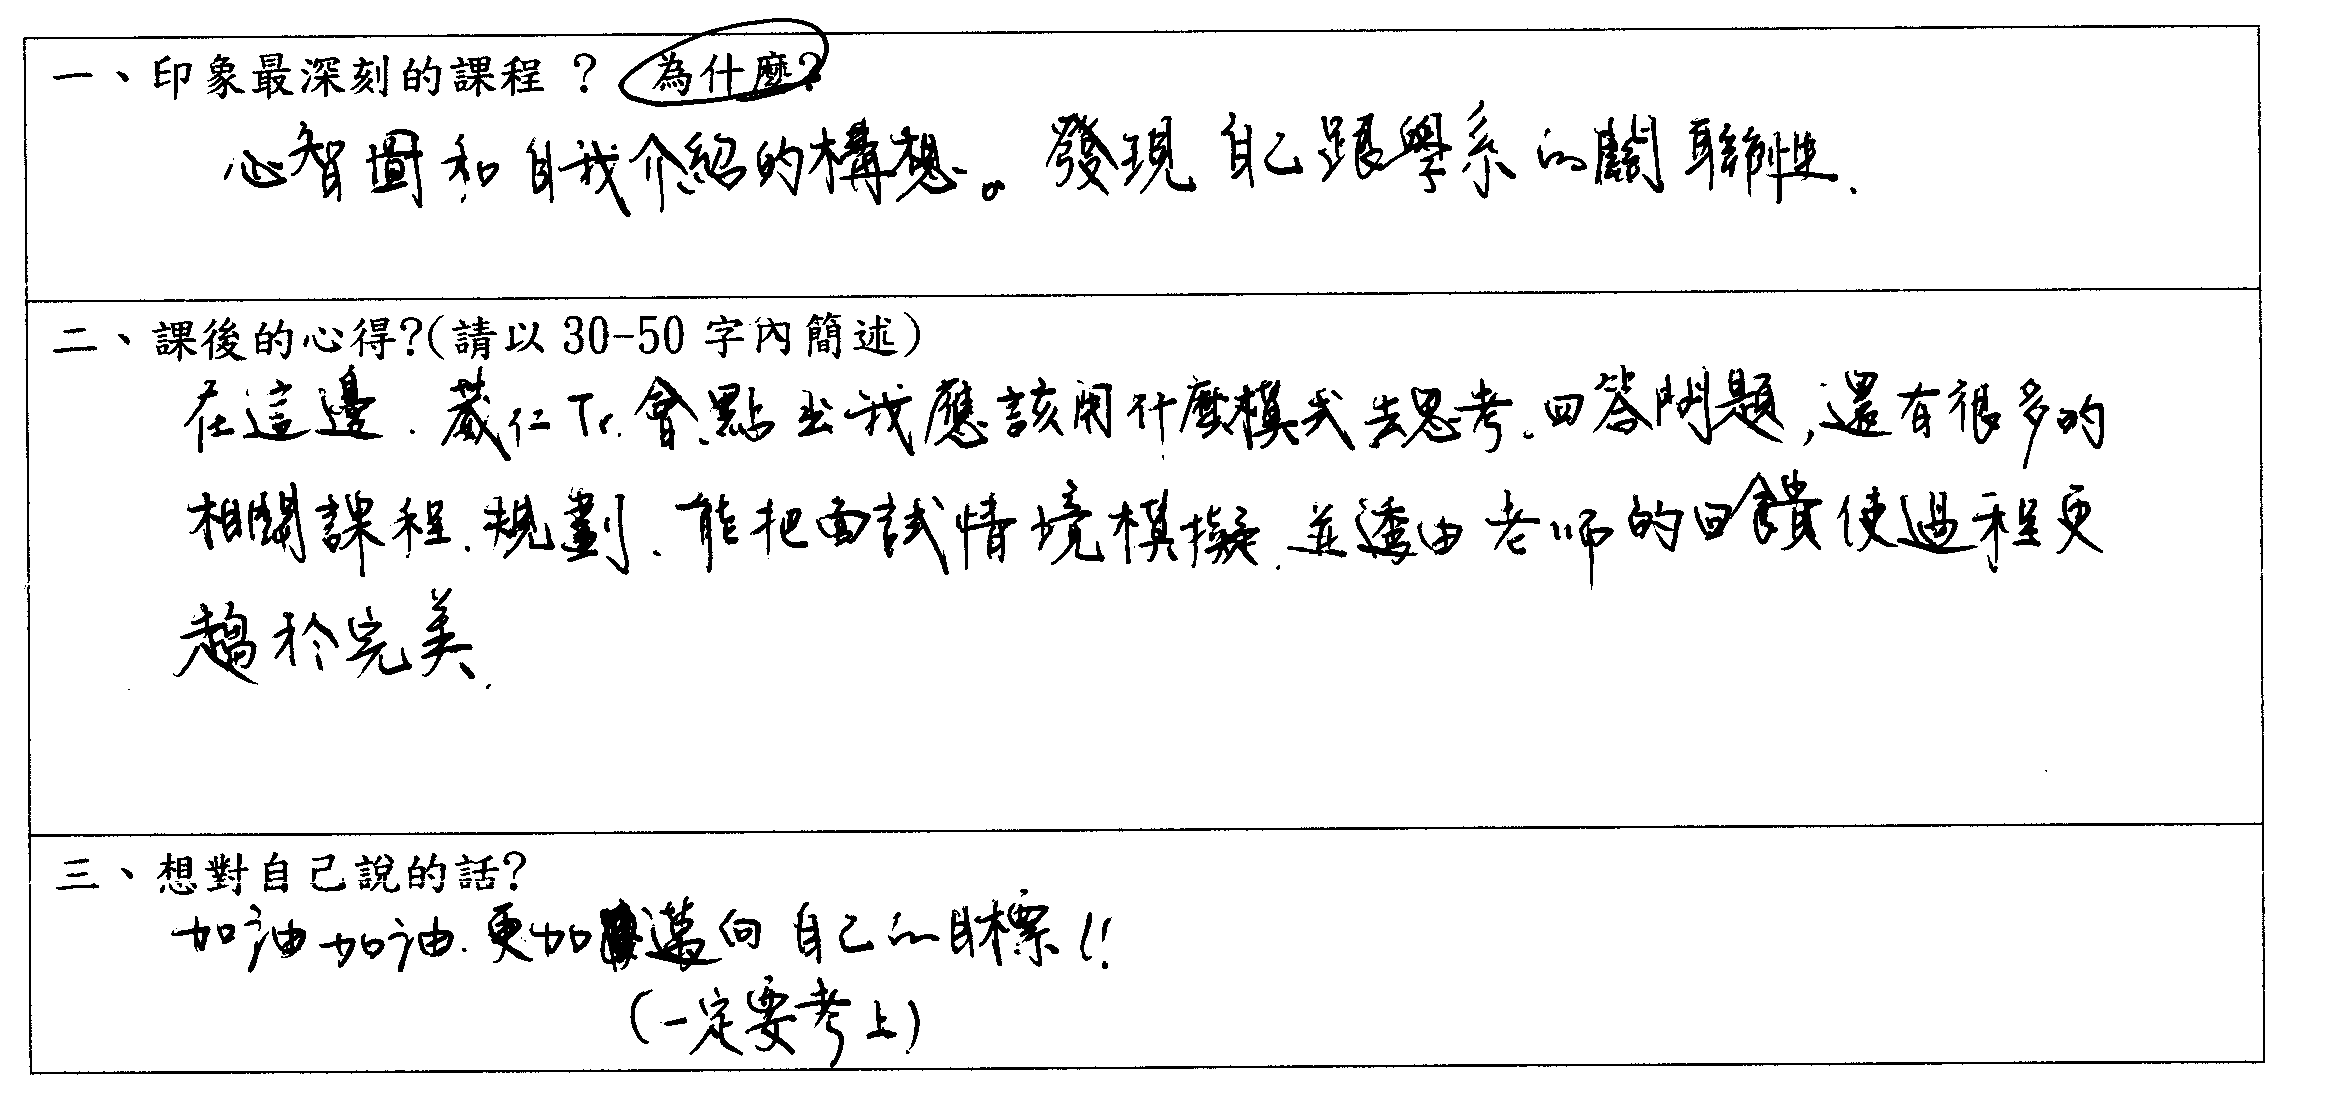 一、印象最深刻的課程？ 為什麼?
心智圖和自我介紹的構想。發現自己跟學系的關聯性.
二、課後的心得?(請以 30-50 字內簡述)
在這邊.葳仁Tr.會點出我應該用什麼模式去思考.回答問題,還有很多的
相關課程.規劃.能把面試情境模擬.並透由老師的回饋使過程更
趨於完美.
三、想對自己說的話?
加油加油.更加邁向自己的目標!!
(一定要考上)